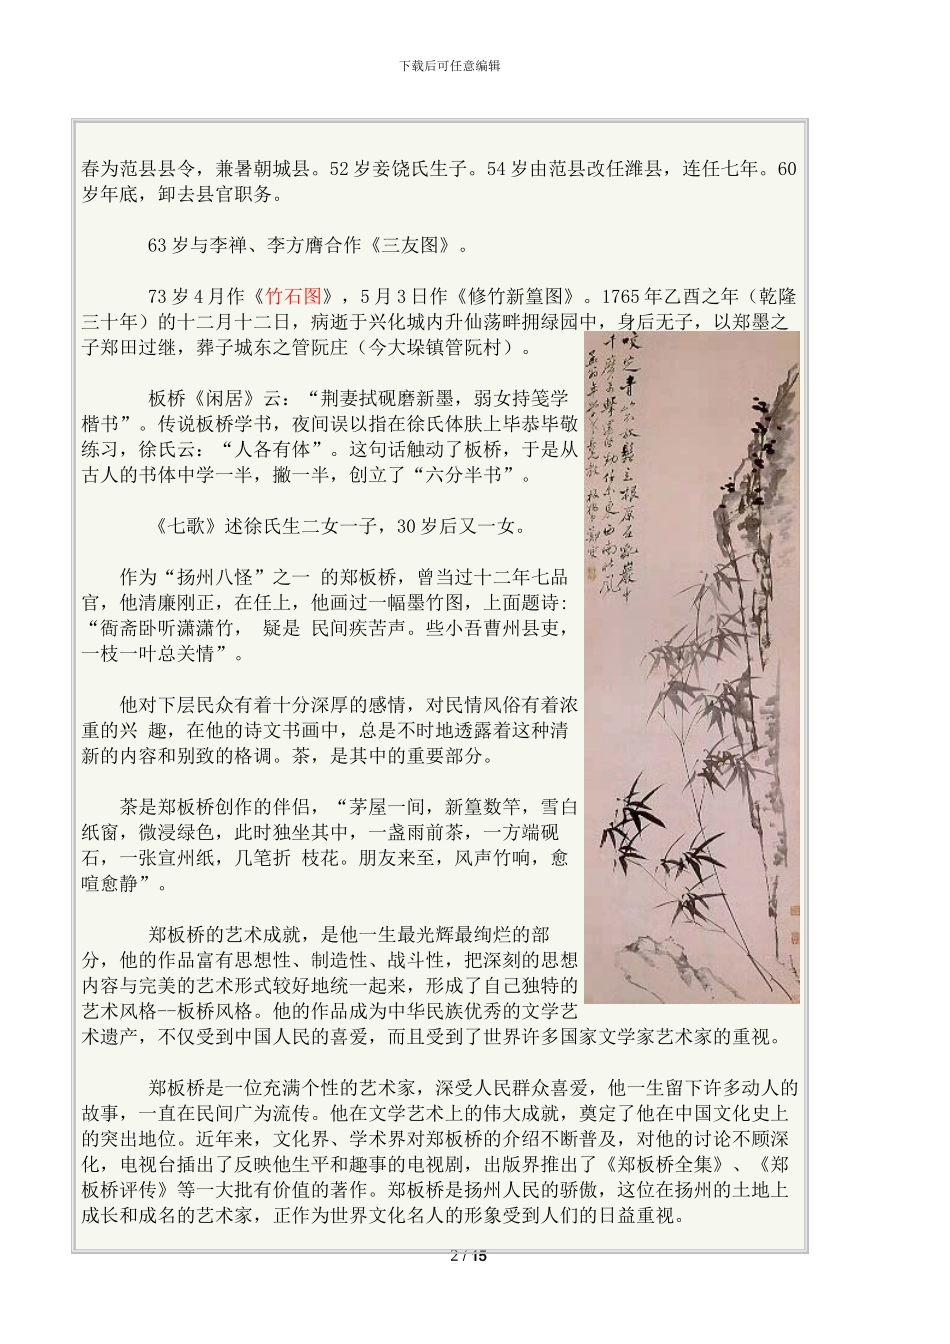 下载后可任意编辑
春为范县县令，兼暑朝城县。52 岁妾饶氏生子。54 岁由范县改任潍县，连任七年。60
岁年底，卸去县官职务。
63 岁与李禅、李方膺合作《三友图》。
73 岁 4 月作《竹石图》，5 月 3 日作《修竹新篁图》。1765 年乙酉之年（乾隆
三十年）的十二月十二日，病逝于兴化城内升仙荡畔拥绿园中，身后无子，以郑墨之
子郑田过继，葬子城东之管阮庄（今大垛镇管阮村）。
板桥《闲居》云：“荆妻拭砚磨新墨，弱女持笺学
楷书”。传说板桥学书，夜间误以指在徐氏体肤上毕恭毕敬
练习，徐氏云：“人各有体”。这句话触动了板桥，于是从
古人的书体中学一半，撇一半，创立了“六分半书”。
《七歌》述徐氏生二女一子，30 岁后又一女。
作为“扬州八怪”之一 的郑板桥，曾当过十二年七品
官，他清廉刚正，在任上，他画过一幅墨竹图，上面题诗：
“衙斋卧听潇潇竹， 疑是 民间疾苦声。些小吾曹州县吏，
一枝一叶总关情”。
他对下层民众有着十分深厚的感情，对民情风俗有着浓
重的兴 趣，在他的诗文书画中，总是不时地透露着这种清
新的内容和别致的格调。茶，是其中的重要部分。
茶是郑板桥创作的伴侣，“茅屋一间，新篁数竿，雪白
纸窗，微浸绿色，此时独坐其中，一盏雨前茶，一方端砚
石，一张宣州纸，几笔折 枝花。朋友来至，风声竹响，愈
喧愈静”。
郑板桥的艺术成就，是他一生最光辉最绚烂的部
分，他的作品富有思想性、制造性、战斗性，把深刻的思想
内容与完美的艺术形式较好地统一起来，形成了自己独特的
艺术风格--板桥风格。他的作品成为中华民族优秀的文学艺
术遗产，不仅受到中国人民的喜爱，而且受到了世界许多国家文学家艺术家的重视。
郑板桥是一位充满个性的艺术家，深受人民群众喜爱，他一生留下许多动人的
故事，一直在民间广为流传。他在文学艺术上的伟大成就，奠定了他在中国文化史上
的突出地位。近年来，文化界、学术界对郑板桥的介绍不断普及，对他的讨论不顾深
化，电视台插出了反映他生平和趣事的电视剧，出版界推出了《郑板桥全集》、《郑
板桥评传》等一大批有价值的著作。郑板桥是扬州人民的骄傲，这位在扬州的土地上
成长和成名的艺术家，正作为世界文化名人的形象受到人们的日益重视。
2 / 15